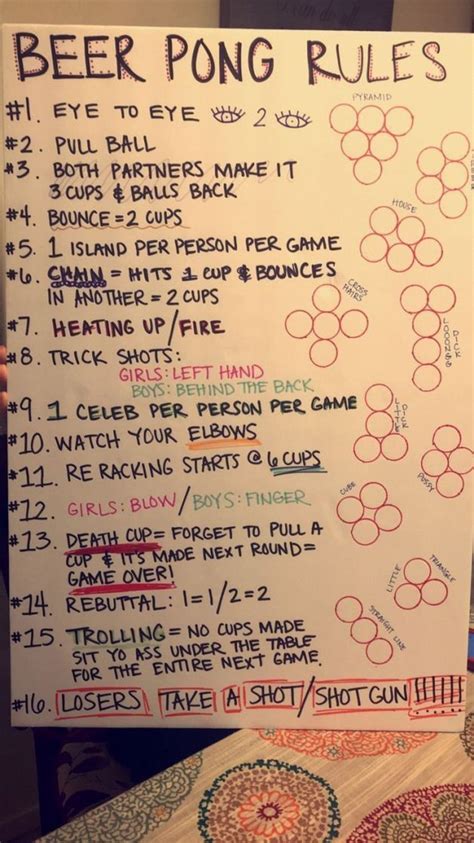 BEER PONG RULES
#1. EYE TO EYE 2
#2. PULL BALL
#3. BOTH PARTNERS MAKE IT
3 CUPS & BALLS BACK
#4. BOUNCE = 2 CUPS
#5. 1 ISLAND PER PERSON PER GAME
#6. CHAIN = HITS 1 CUP & BOUNCES
IN ANOTHER = 2 CUPS
#7. HEATING UP/FIRE
#8. TRICK SHOTS:
GIRLS: LEFT HAND
BOYS: BEHIND THE BACK
#9. 1 CELEB PER PERSON PER GAME
#10. WATCH YOUR ELBOWS
#11. RE RACKING STARTS @ 6 CUPS
#12. GIRLS: BLOW/BOYS: FINGER
#13. DEATH CUP = FORGET TO PULL A
CUP & IT'S MADE NEXT ROUND =
GAME OVER!
#14. REBUTTAL: 1=1/2=2
#15. TROLLING = NO CUPS MADE
SIT YO ASS UNDER THE TABLE
FOR THE ENTIRE NEXT GAME.
#16. LOSERS TAKE A SHOT/SHOTGUN!!!!!!
PYRAMID
HOUSE
CROSS
HAIRS
LOOONGG
DICK
LITTLE
DICK
PUSSY
CUBE
LITTLE TRIANGLE
STRAIGHT LINE